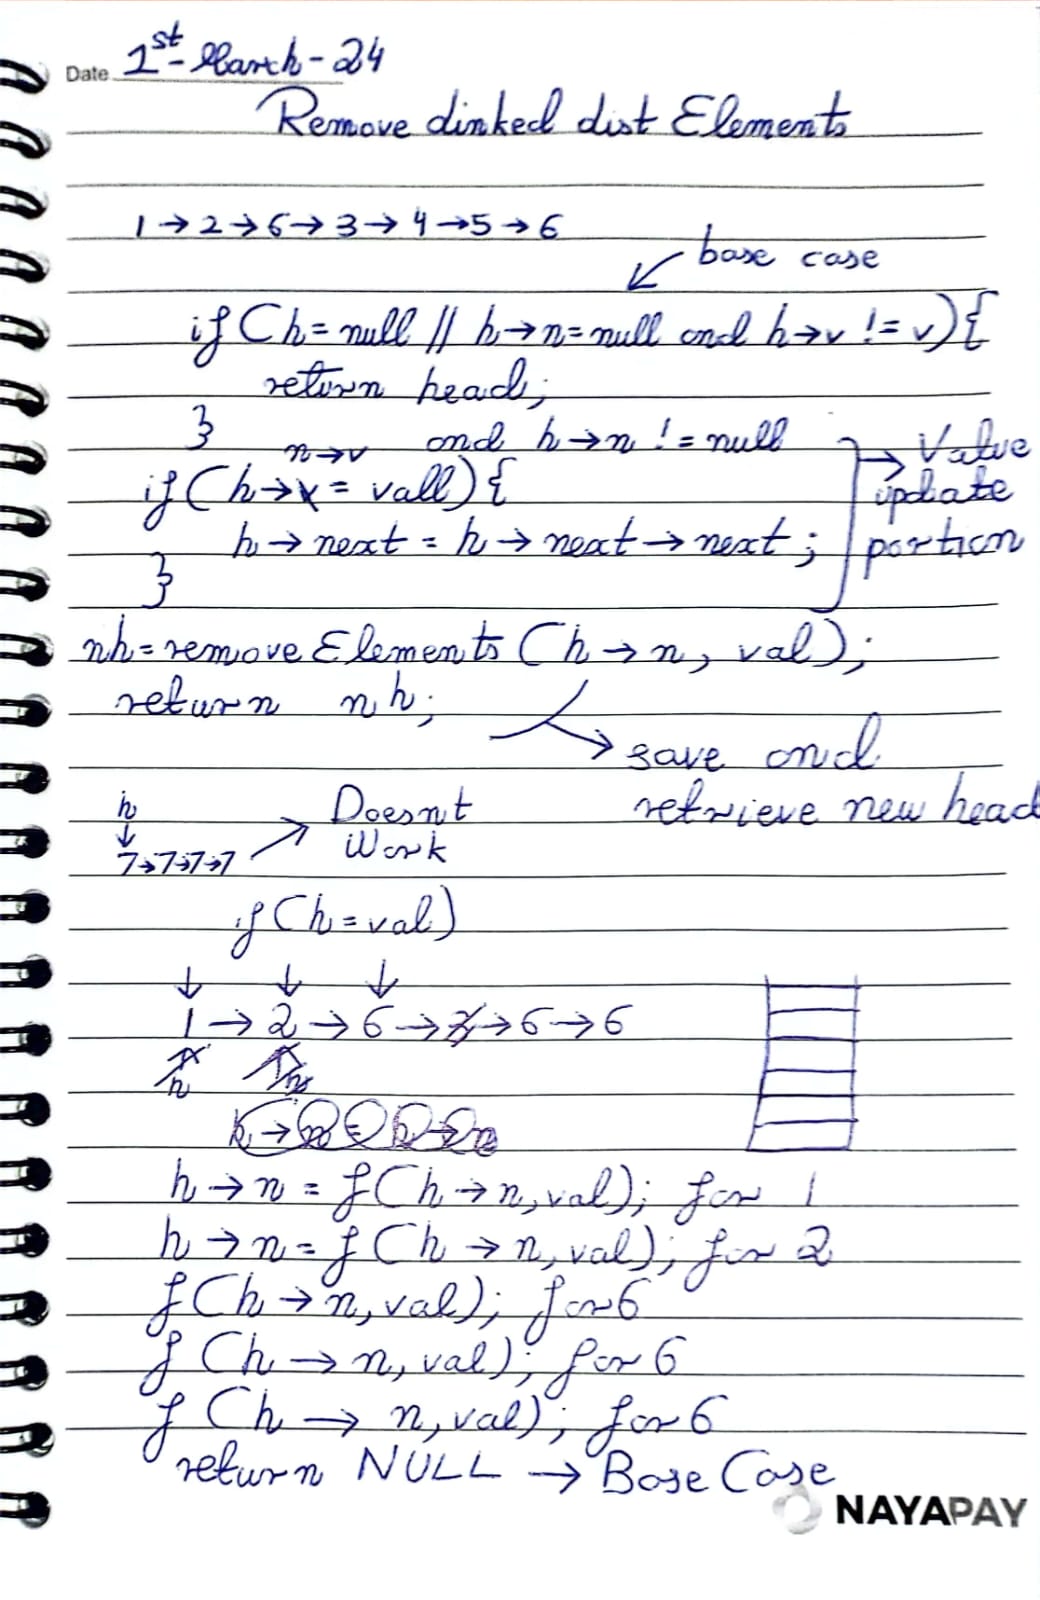 Date 1st-March-24
Remove Linked List Elements
1→2→6→3→4→5→6
base case
if(h=null || h→n=null and h→v != v){
return head;
}
n→v and h→n != null
if(h→v = vall){
h→next = h→next→next;
}
Value
update
portion
nh=removeElements(h→n, val);
return nh;
save and
retrieve new head
h
↓
7→7→7→7
Doesnt
Work
if(h=val)
↓ ↓ ↓
1→2→6→2→6→6
h h
h→n = f(h→n,val); for 1
h→n= f(h→n,val); for 2
f(h→n,val); for 6
f(h→n,val); for 6
f(h→n,val); for 6
return NULL → Base Case
NAYAPAY